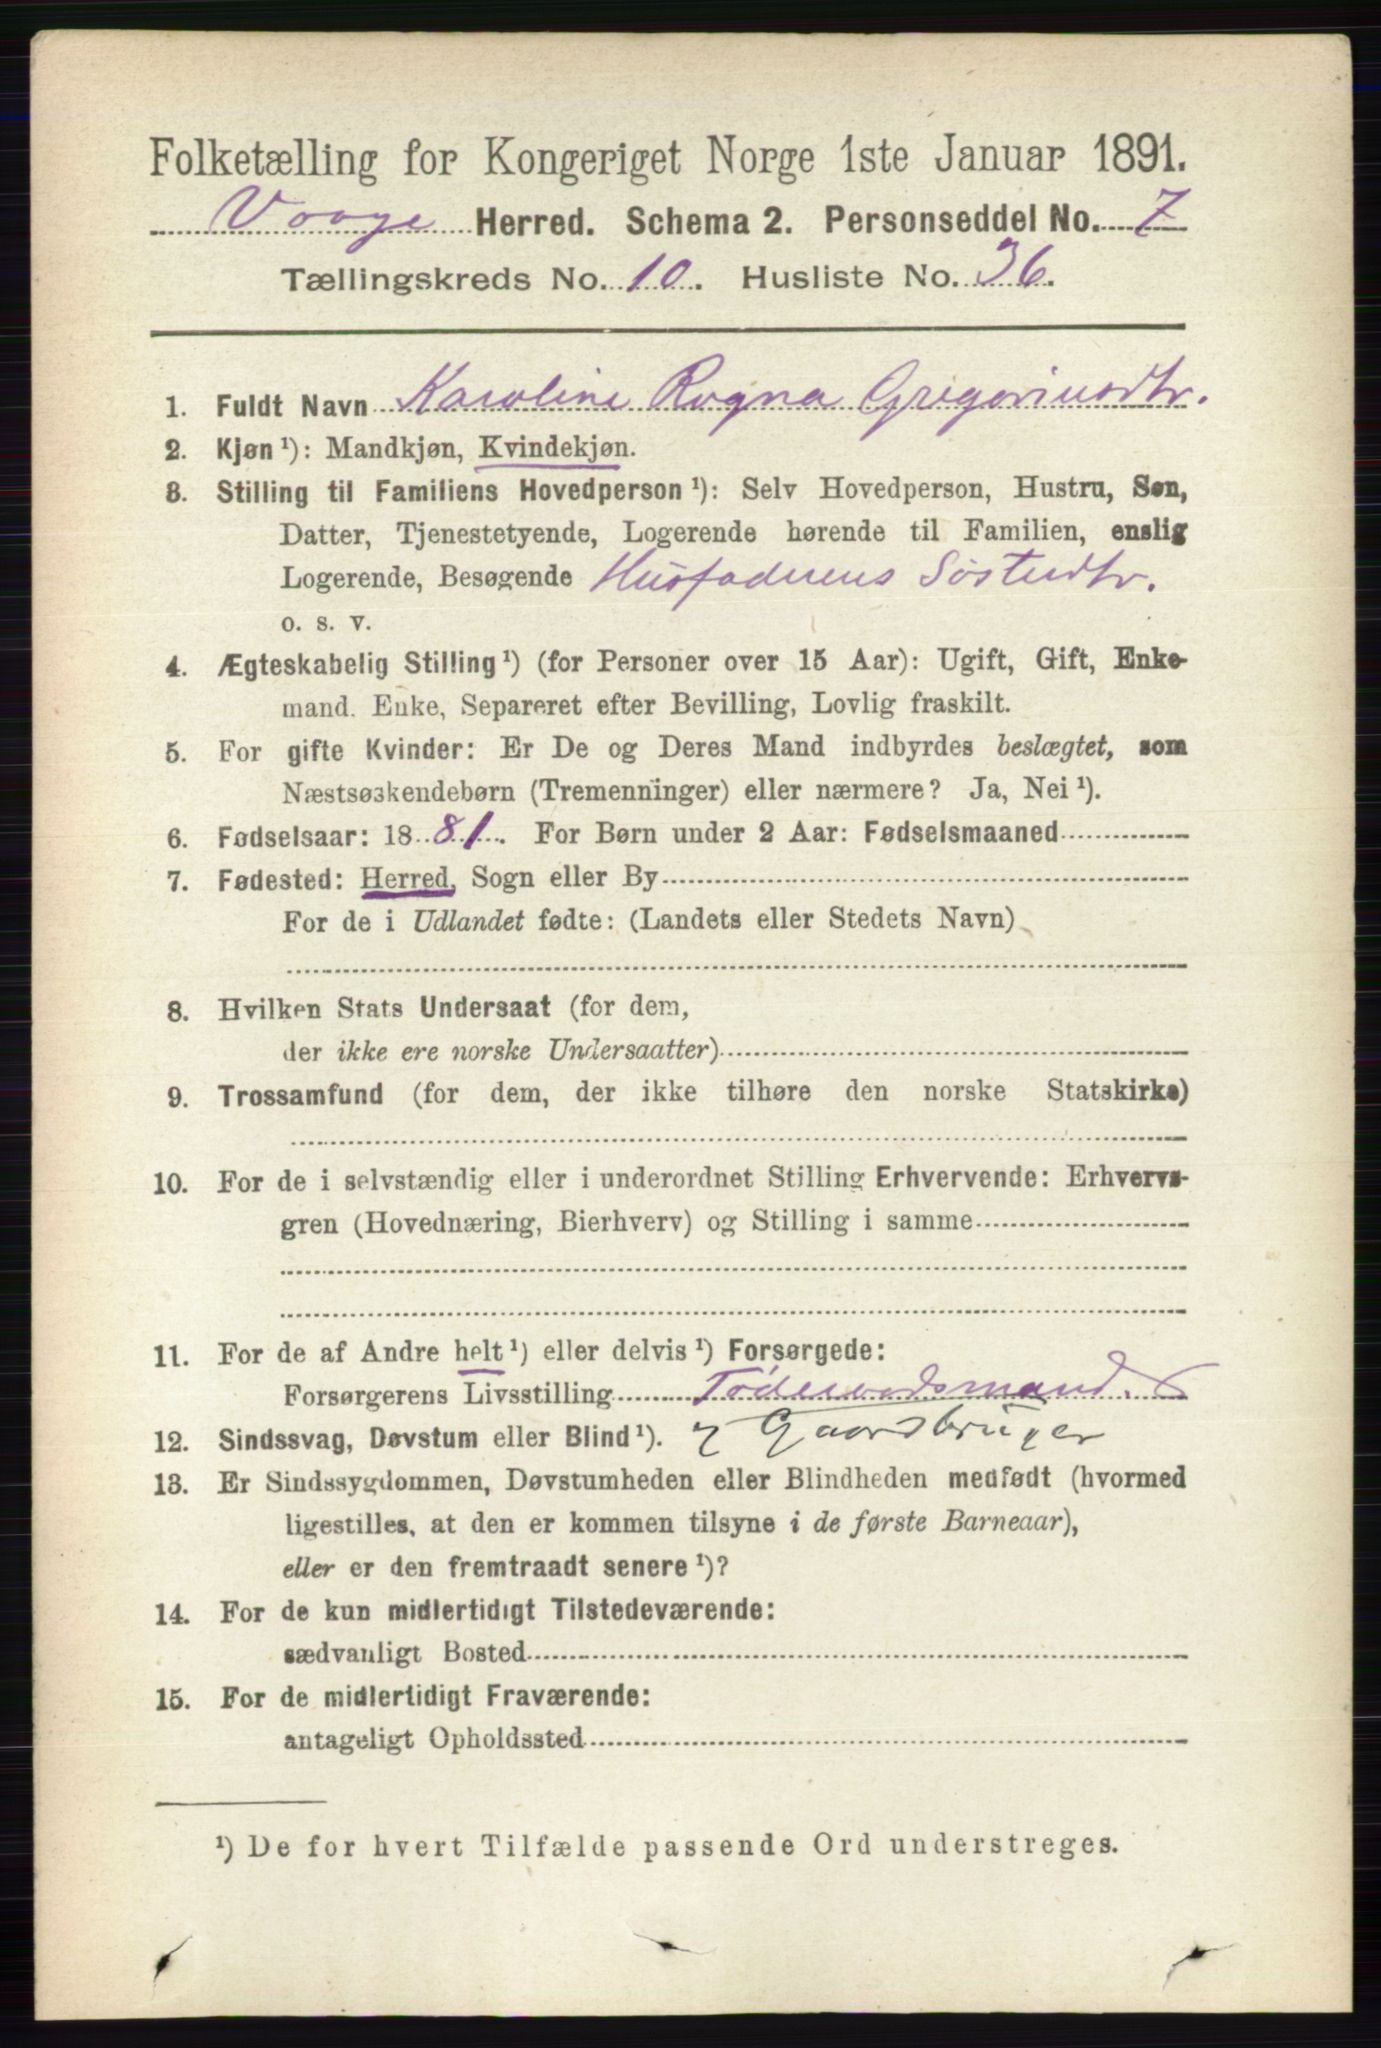 Folketælling for Kongeriget Norge 1ste Januar 1891.
Vaage Herred. Schema 2. Personseddel No. 7
Tællingskreds No. 10. Husliste No. 36.
1. Fuldt Navn Karoline Ragna Gregoriusdtr.
2. Kjøn ¹): Mandkjøn, Kvindekjøn.
3. Stilling til Familiens Hovedperson ¹): Selv Hovedperson, Hustru, Søn,
Datter, Tjenestetyende, Logerende hørende til Familien, enslig
Logerende, Besøgende Husfaderens Søsterdtr.
o. s. v.
4. Ægteskabelig Stilling ¹) (for Personer over 15 Aar): Ugift, Gift, Enke-
mand. Enke, Separeret efter Bevilling, Lovlig fraskilt.
5. For gifte Kvinder: Er De og Deres Mand indbyrdes beslægtet, som
Næstsøskendebørn (Tremenninger) eller nærmere? Ja, Nei ¹).
6. Fødselsaar: 1881. For Børn under 2 Aar: Fødselsmaaned
7. Fødested: Herred, Sogn eller By
For de i Udlandet fødte: (Landets eller Stedets Navn)
8. Hvilken Stats Undersaat (for dem,
der ikke ere norske Undersaatter)
9. Trossamfund (for dem, der ikke tilhøre den norske Statskirke)
10. For de i selvstændig eller i underordnet Stilling Erhvervende: Erhvervs-
gren (Hovednæring, Bierhverv) og Stilling i samme
11. For de af Andre helt ¹) eller delvis ¹) Forsørgede:
Forsørgerens Livsstilling Føderaadsmand.
12. Sindssvag, Døvstum eller Blind ¹). Gaardbruger
13. Er Sindssygdommen, Døvstumheden eller Blindheden medfødt (hvormed
ligestilles, at den er kommen tilsyne i de første Barneaar),
eller er den fremtraadt senere ¹)?
14. For de kun midlertidigt Tilstedeværende:
sædvanligt Bosted
15. For de midlertidigt Fraværende:
antageligt Opholdssted
¹) De for hvert Tilfælde passende Ord understreges.